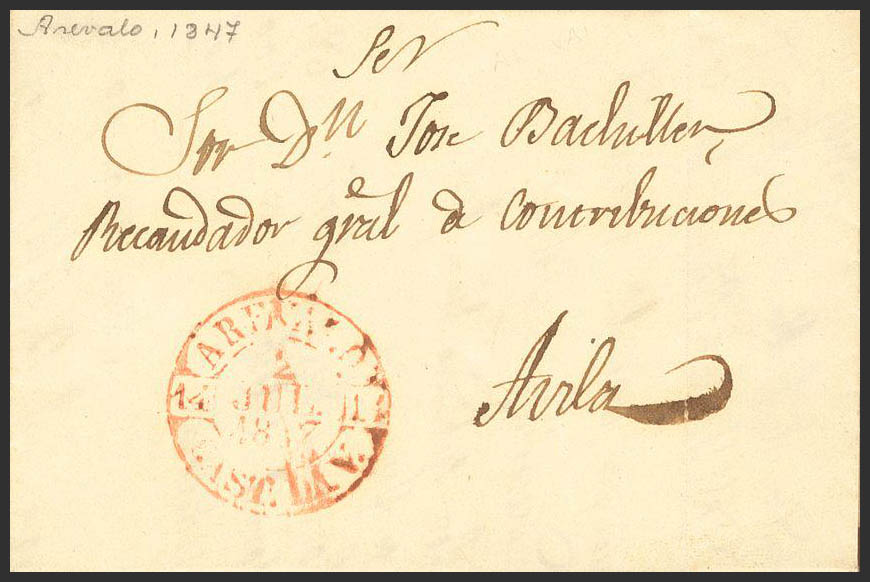 Arevalo, 1847
Ser
Sor Dn Jose Bachiller
Recaudador gral de Contribuciones
Avila
AREVALO
2
JUL.
1847
CAST. LA V.